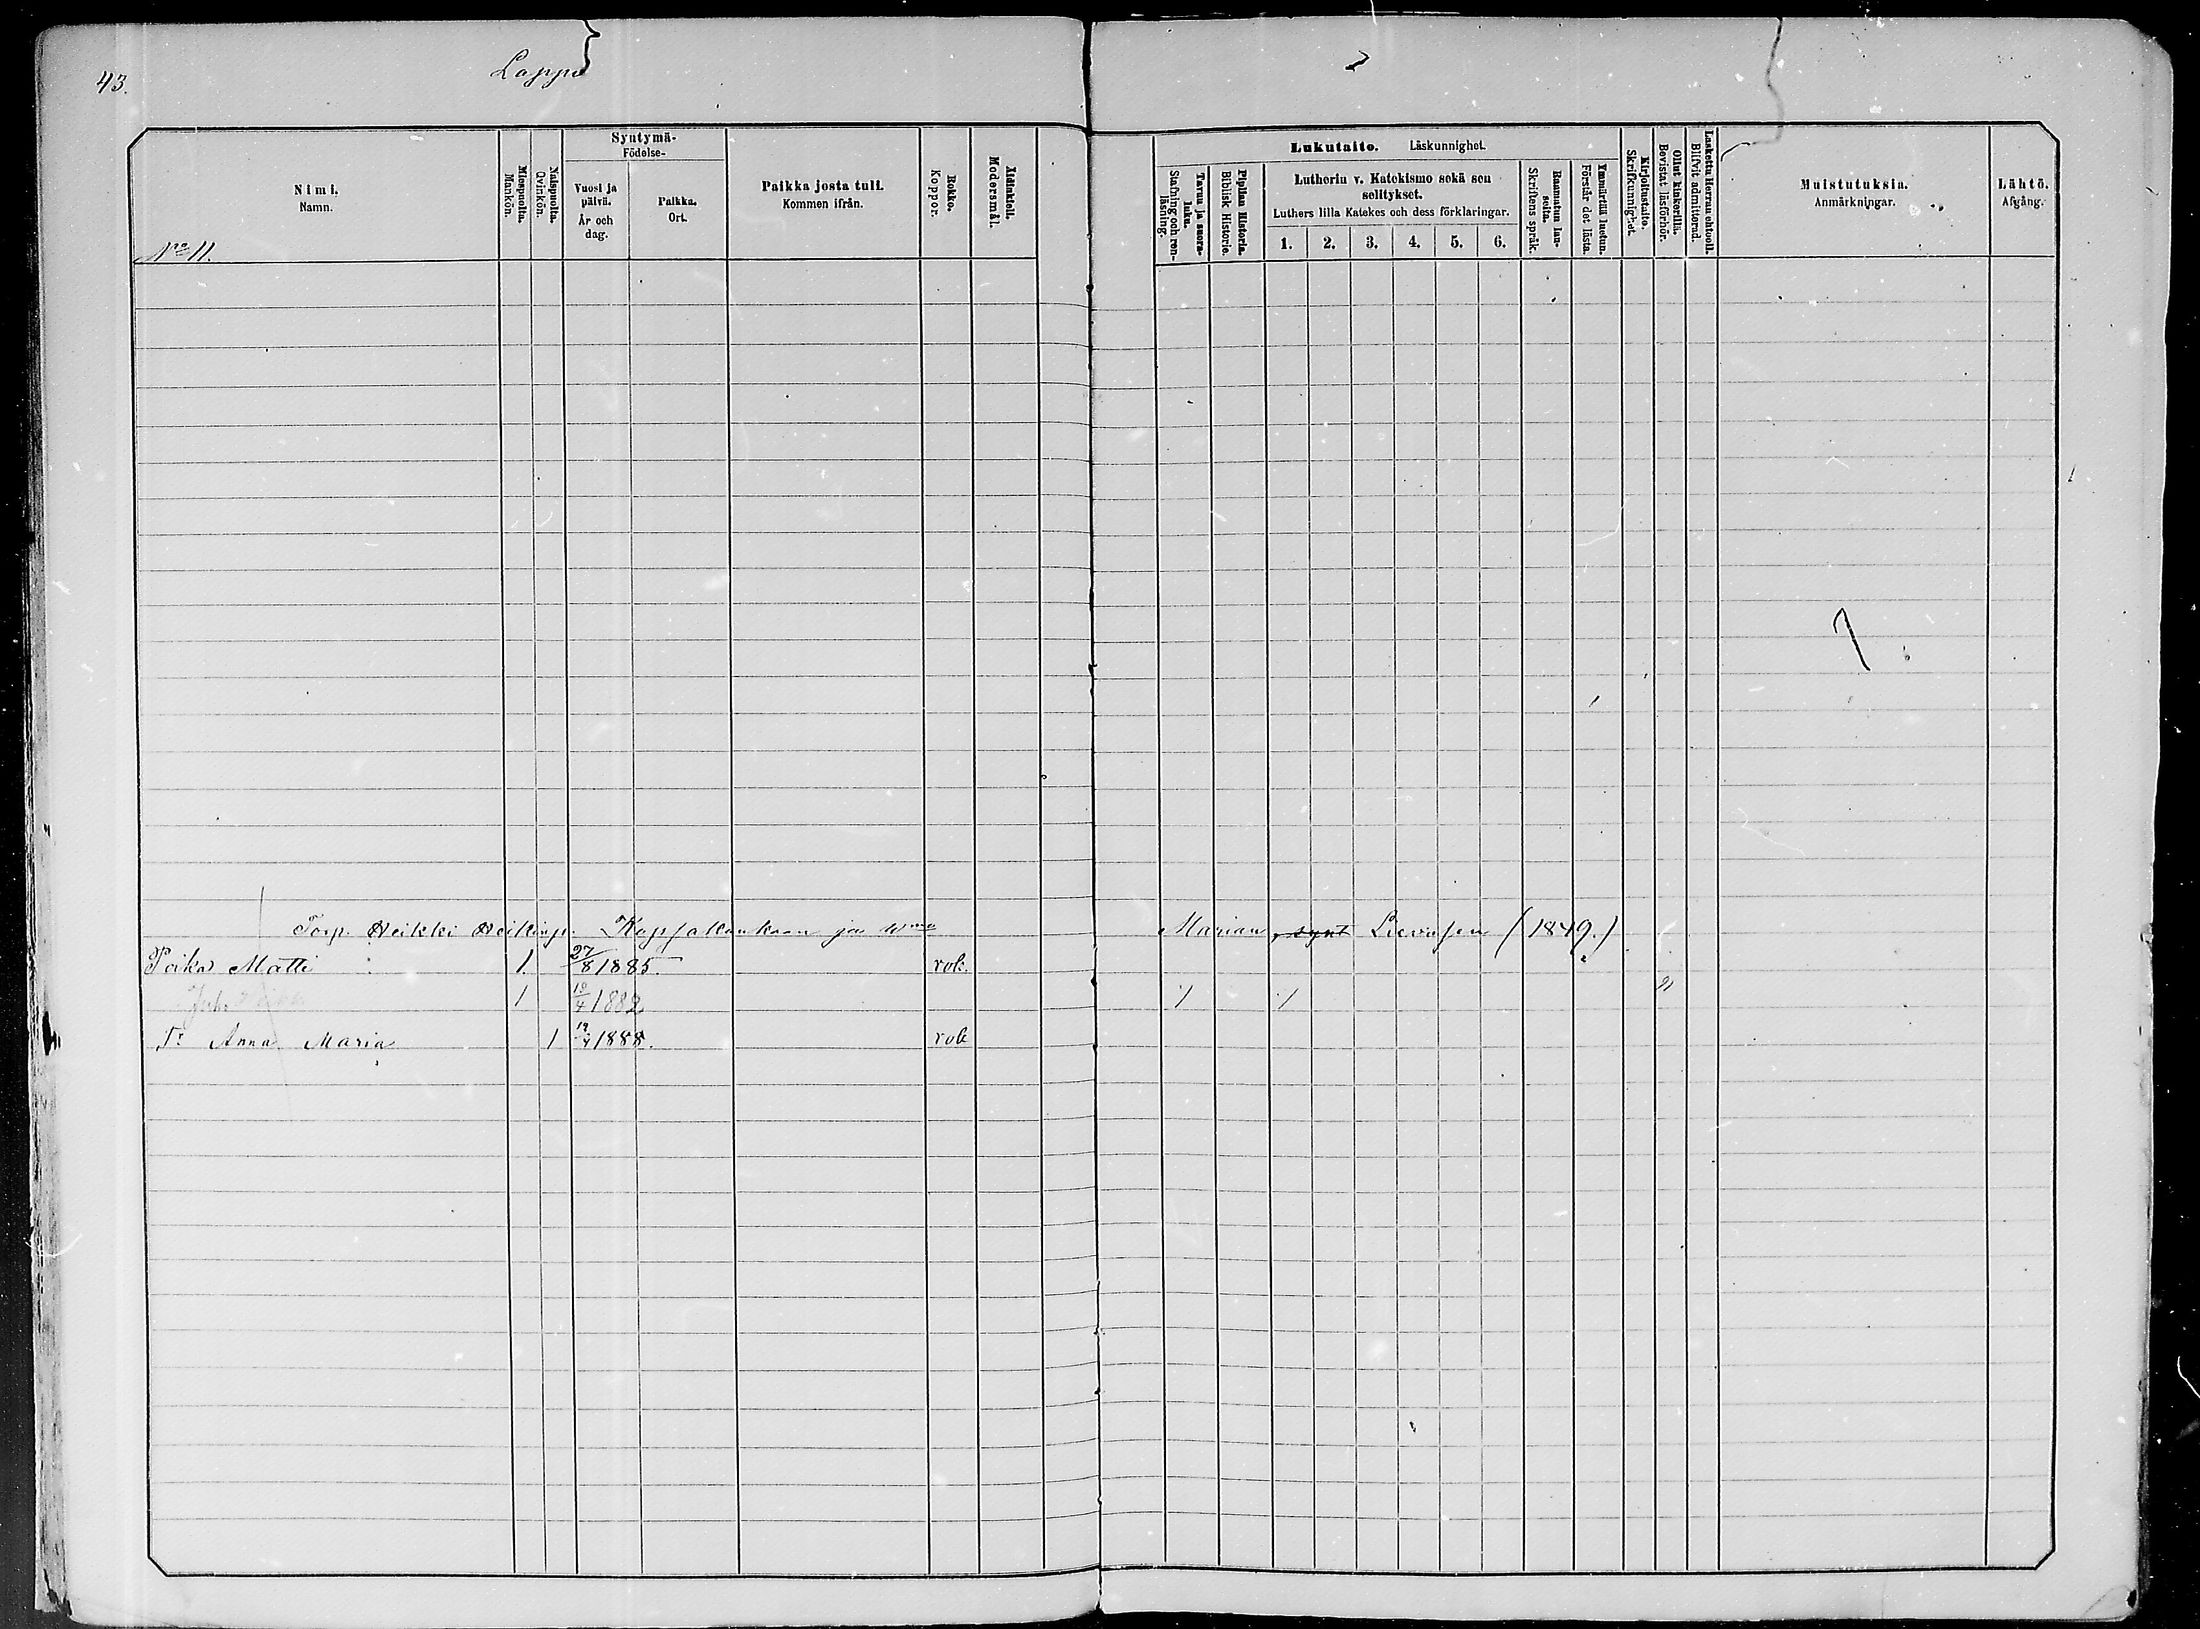 43.
Lappo
Nimi.
Namn.
Miespuolta.
Mankön.
Naispuolta.
Qvinkön.
Syntymä-
Födelse-
Vuosi ja päivä.
År och dag.
Paikka.
Ort.
Paikka josta tuli.
Kommen ifrån.
Rokko.
Koppor.
Äidinkieli.
Modersmål.
Lukutaito. Läskunnighet.
Tavuu ja suora-luku.
Stafning och ren-läsning.
Piplian Historia.
Biblisk Historie.
Lutherin v. Katekismo sekä sen selitykset.
Luthers lilla Katekes och dess förklaringar.
1. 2. 3. 4. 5. 6.
Raamatun lau-seita.
Skriftens språk.
Ymmärtää luetun.
Förstår det lästa.
Kirjoitustaito.
Skrifkunnighet.
Ollut kinkerillä.
Bevistat läsförhör.
Laskettu Herran ehtool.
Blifvit admitterad.
Muistutuksia.
Anmärkningar.
Lähtö.
Afgång.
No 11.
Torp. Heikki Heikinp. ja Marian, synt (1849.)
Poika Matti 1 27/8 1885. rok.
Juh. 1 1882
T: Anna Maria 1 1888. rok